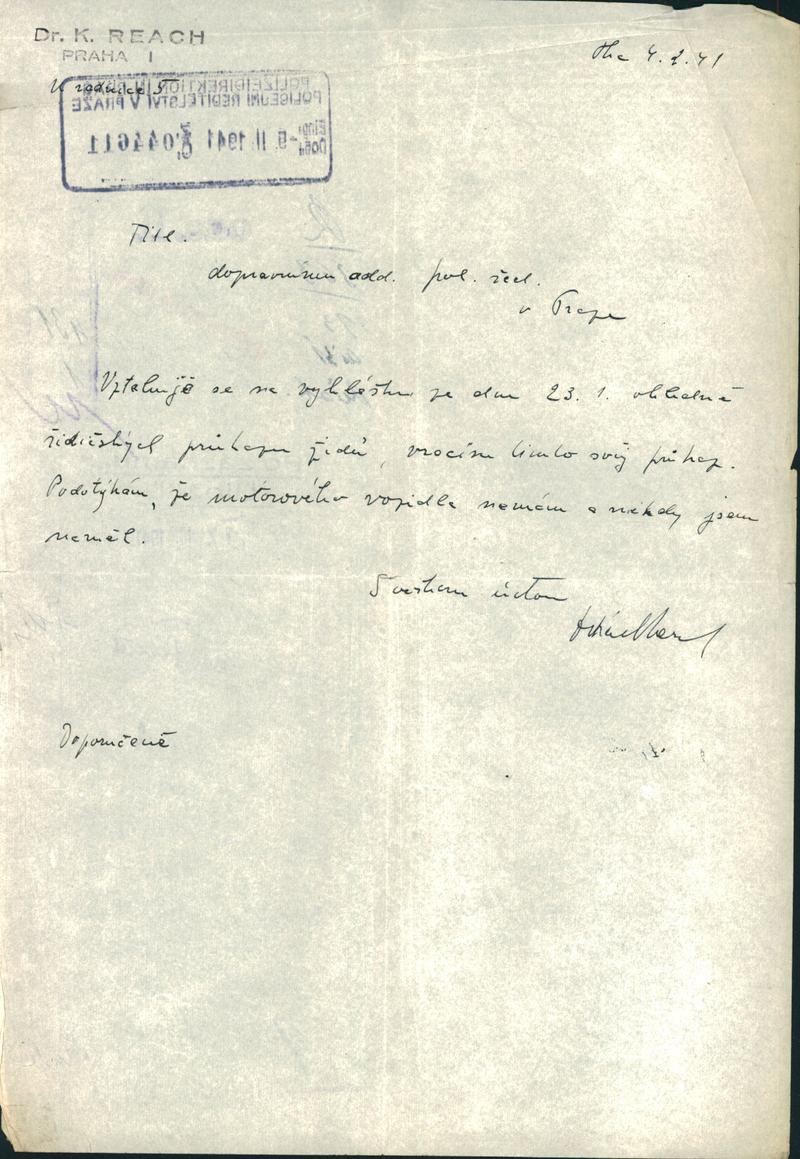 Dr. K. REACH
PRAHA I
U radnice 5
Pha 4.2.41
POLIZEIDIREKTION IN PRAG
POLICEJNÍ ŘEDITELSTVÍ V PRAZE
Eing.
Došlo -5. II. 1941 044611
Titl.
dopravnímu odd. pol. řed.
v Praze
Vztahuje se na vyhlášku ze dne 23. 1. ohledně
řidičských průkazu židů, vracím tímto svůj průkaz.
Podotýkám, že motorového vozidla nemám a nikdy jsem
neměl.
S veškerou úctou
Doporučeně